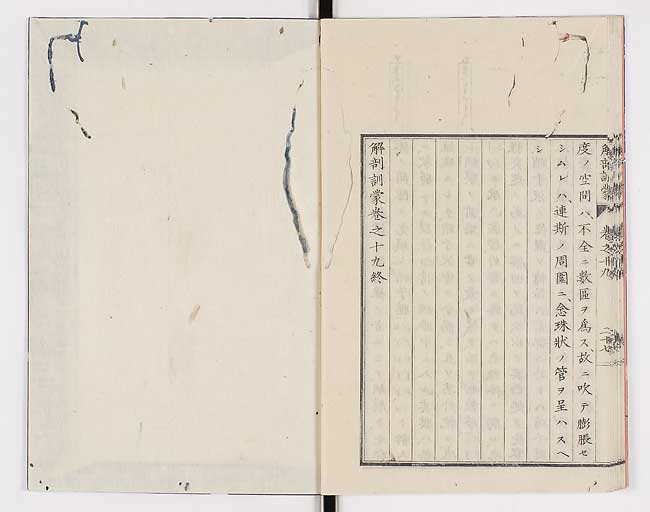 解剖訓蒙
卷之十九
二十七
度ノ空間ハ、不全ニ數區ヲ爲ス、故ニ吹テ膨脹セ
シムレハ、連斯ノ周圍ニ、念珠狀ノ管ヲ呈ハスヘ
シ
解剖訓蒙卷之十九終